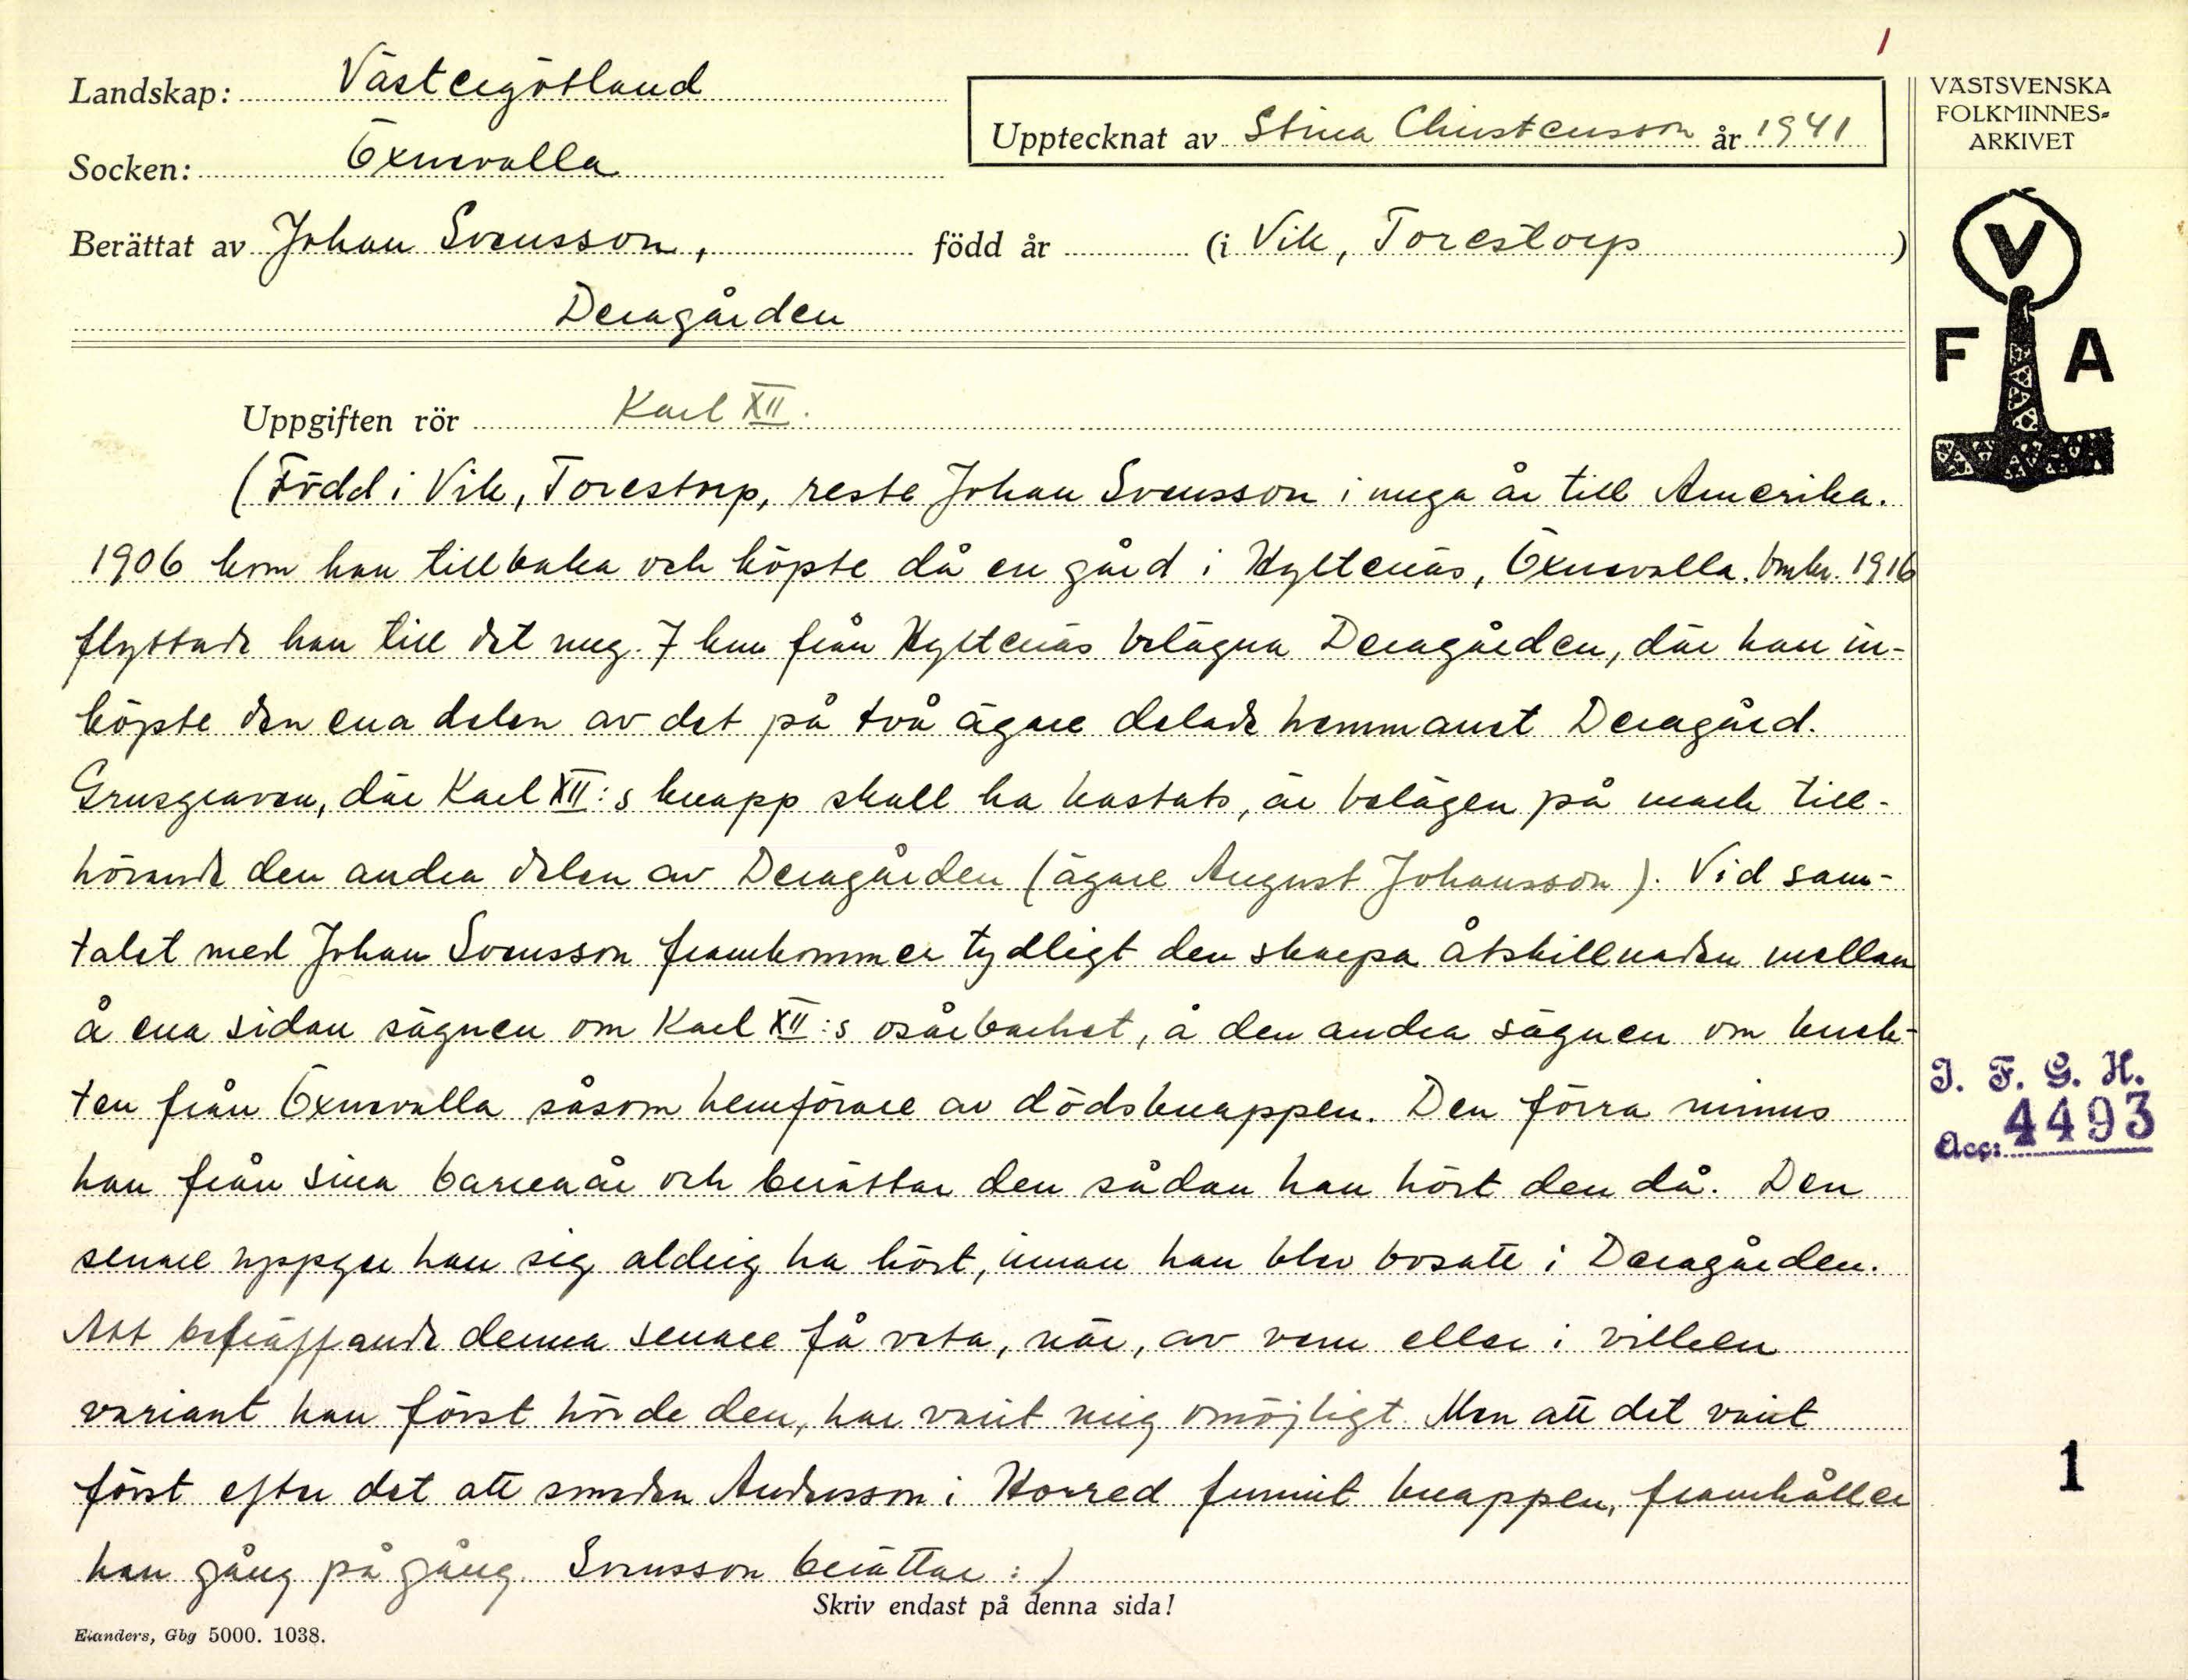 1
Landskap: Västergötland
Socken: Öxnevalla
Upptecknat av Stina Christensson år 1941
VÄSTSVENSKA
FOLKMINNES-
ARKIVET
Berättat av Johan Svensson, född år (i Vik, Torestorp)
Deragården
V
F A
Uppgiften rör Karl XII.
(Född i Vik, Torestorp, reste Johan Svensson i unga år till Amerika.
1906 kom han tillbaka och köpte då en gård i Hyltenäs, Öxnevalla. Omkr. 1916
flyttade han till det ung. 7 km från Hyltenäs belägna Deragården, där han in-
köpte den ena delen av det på två ägare delade hemmanet Deragård.
Grusgraven, där Karl XII:s knapp skall ha kastats, är belägen på mark till-
hörande den andra delen av Deragården (ägare August Johansson). Vid sam-
talet med Johan Svensson framkommer tydligt den skarpa åtskillnaden mellan
å ena sidan sägnen om Karl XII:s osårbarhet, å den andra sägnen om knek-
ten från Öxnevalla såsom hemförare av dödsknappen. Den förra minns
han från sina barnaår och berättar den sådan han hört den då. Den
senare uppger han sig aldrig ha hört, innan han blev bosatt i Deragården.
Att beträffande denna senare få veta, när, av vem eller i vilken
variant han först hörde den, har varit mig omöjligt. Men att det varit
först efter det att smeden Andersson i Horred funnit knappen, framhåller
han gång på gång. Svensson berättar:)
I. F. G. H.
Acc: 4493
1
Skriv endast på denna sida!
Elanders, Gbg 5000. 1038.